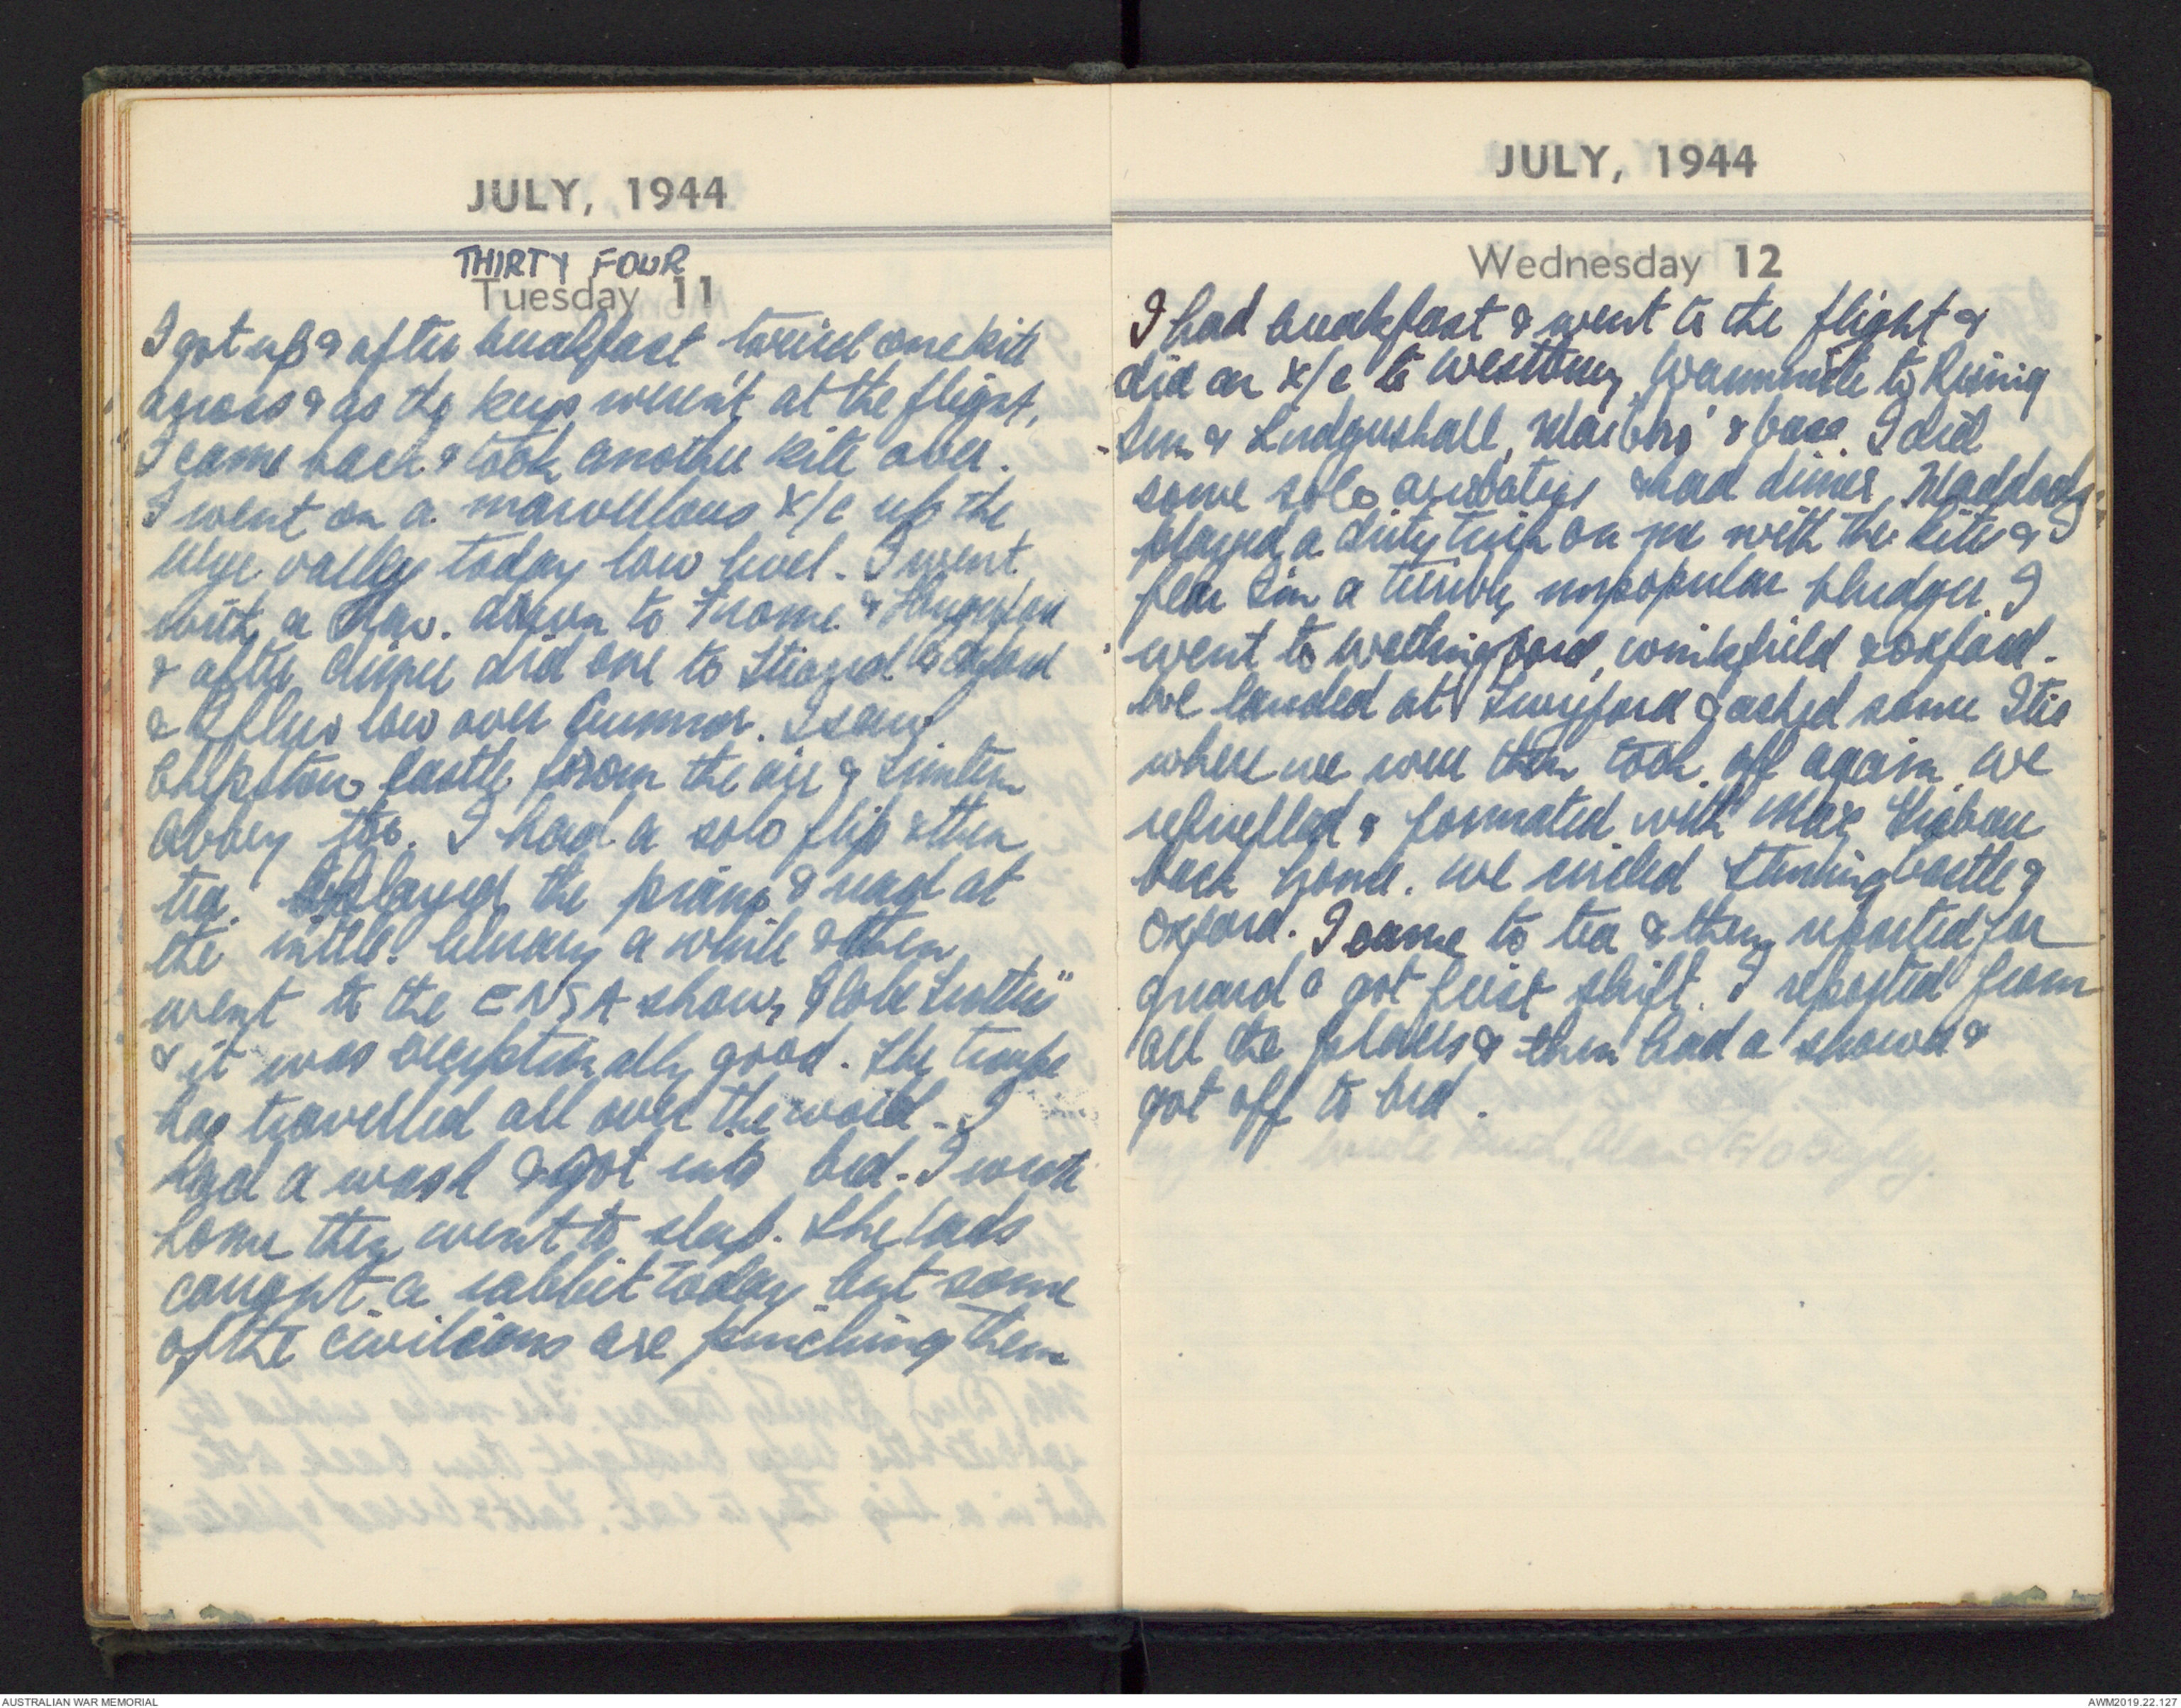 JULY, 1944
THIRTY FOUR
Tuesday 11
I got up & after breakfast taxied one kite
across & as the keys weren't at the flight,
I came back & took another kite over.
I went on a marvellous x/c up the
Wye valley today low level. I went
with a Nav. down to Frome &
& after dinner did one to Stroud to Oxford
& & flew low over Cumnor. I saw
Chepstow Castle from the air & Tintern
Abbey too. I had a solo flip & then
tea. played the piano & read at
the library a while & then
went to the ENSA show, "Globe Trotters"
& it was exceptionally good. The troupe
has travelled all over the world. I
had a wash & got into bed. I wrote
home then went to sleep. The lads
caught a rabbit today but some
of the civilians are pinching them
JULY, 1944
Wednesday 12
I had breakfast & went to the flight &
did an x/c to Westbury, Warminster to Rising
Sun & Ludgershall, Marlboro' & base. I did
some solo aerobatics & had dinner. Maddocks
played a dirty trick on me with the kite & I
fear I'm a terribly unpopular bludger. I
went to Wallingford, Winkfield & Oxford.
We landed at Twyford & asked some Ities
where we were then took off again. We
refuelled & formated with Max
back home. We circled Castle &
Oxford. I came to tea & then reported for
guard & got first shift. I reported from
all the places & then had a shower &
got off to bed.
AUSTRALIAN WAR MEMORIAL
AWM2019.22.127